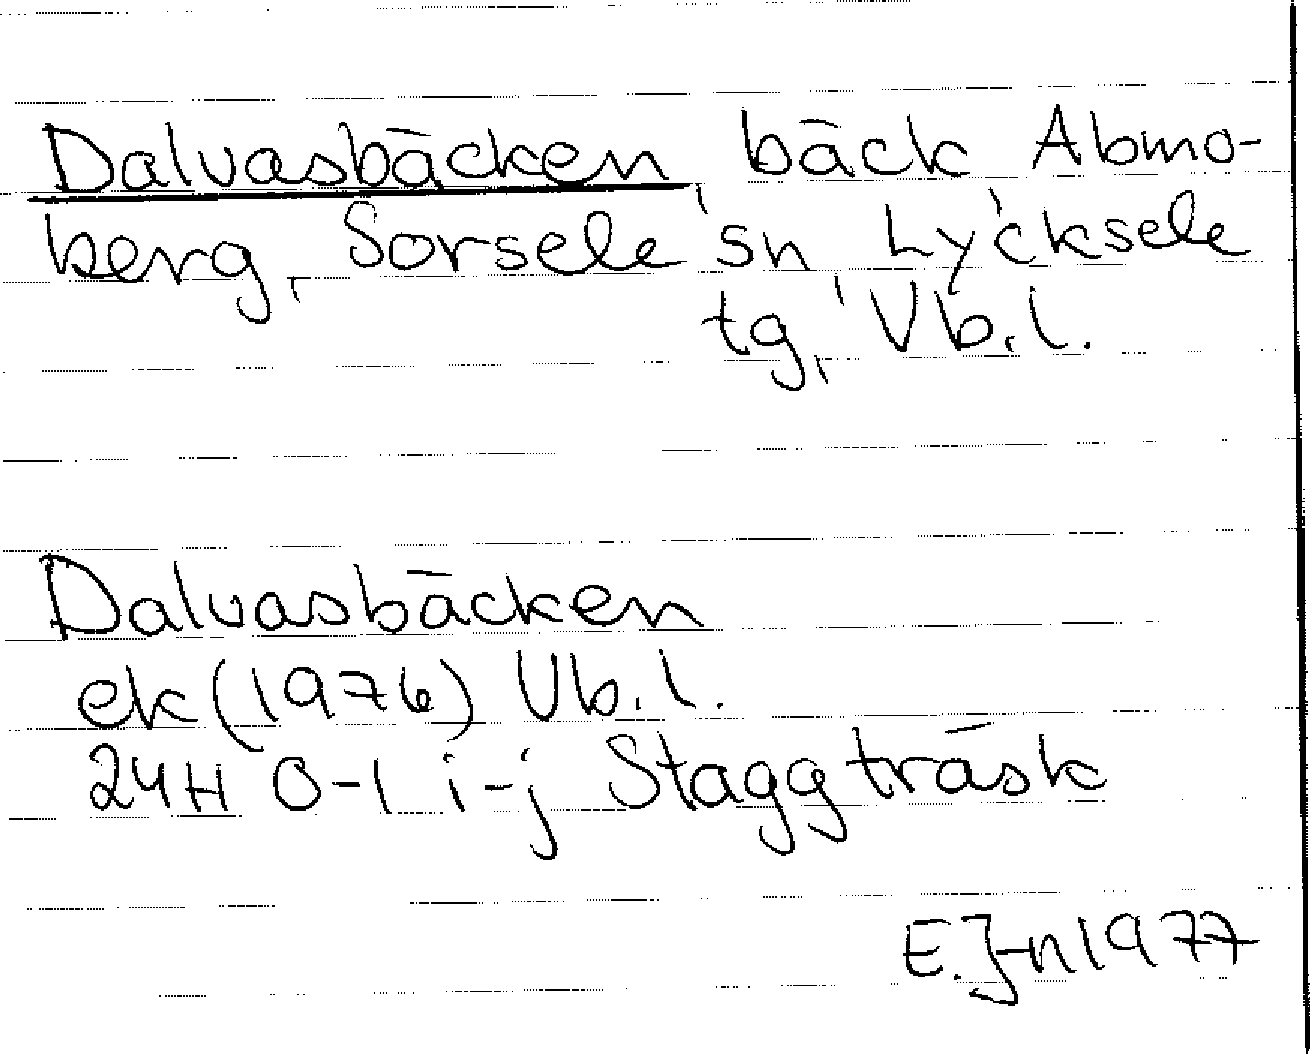 Dalvasbäcken, bäck Abmo-
berg, Sorsele sn, Lycksele
tg, Vb.l.
Dalvasbäcken
ek (1976) Vb.l.
24H 0-1 i-j Staggträsk
E.J-n 1977